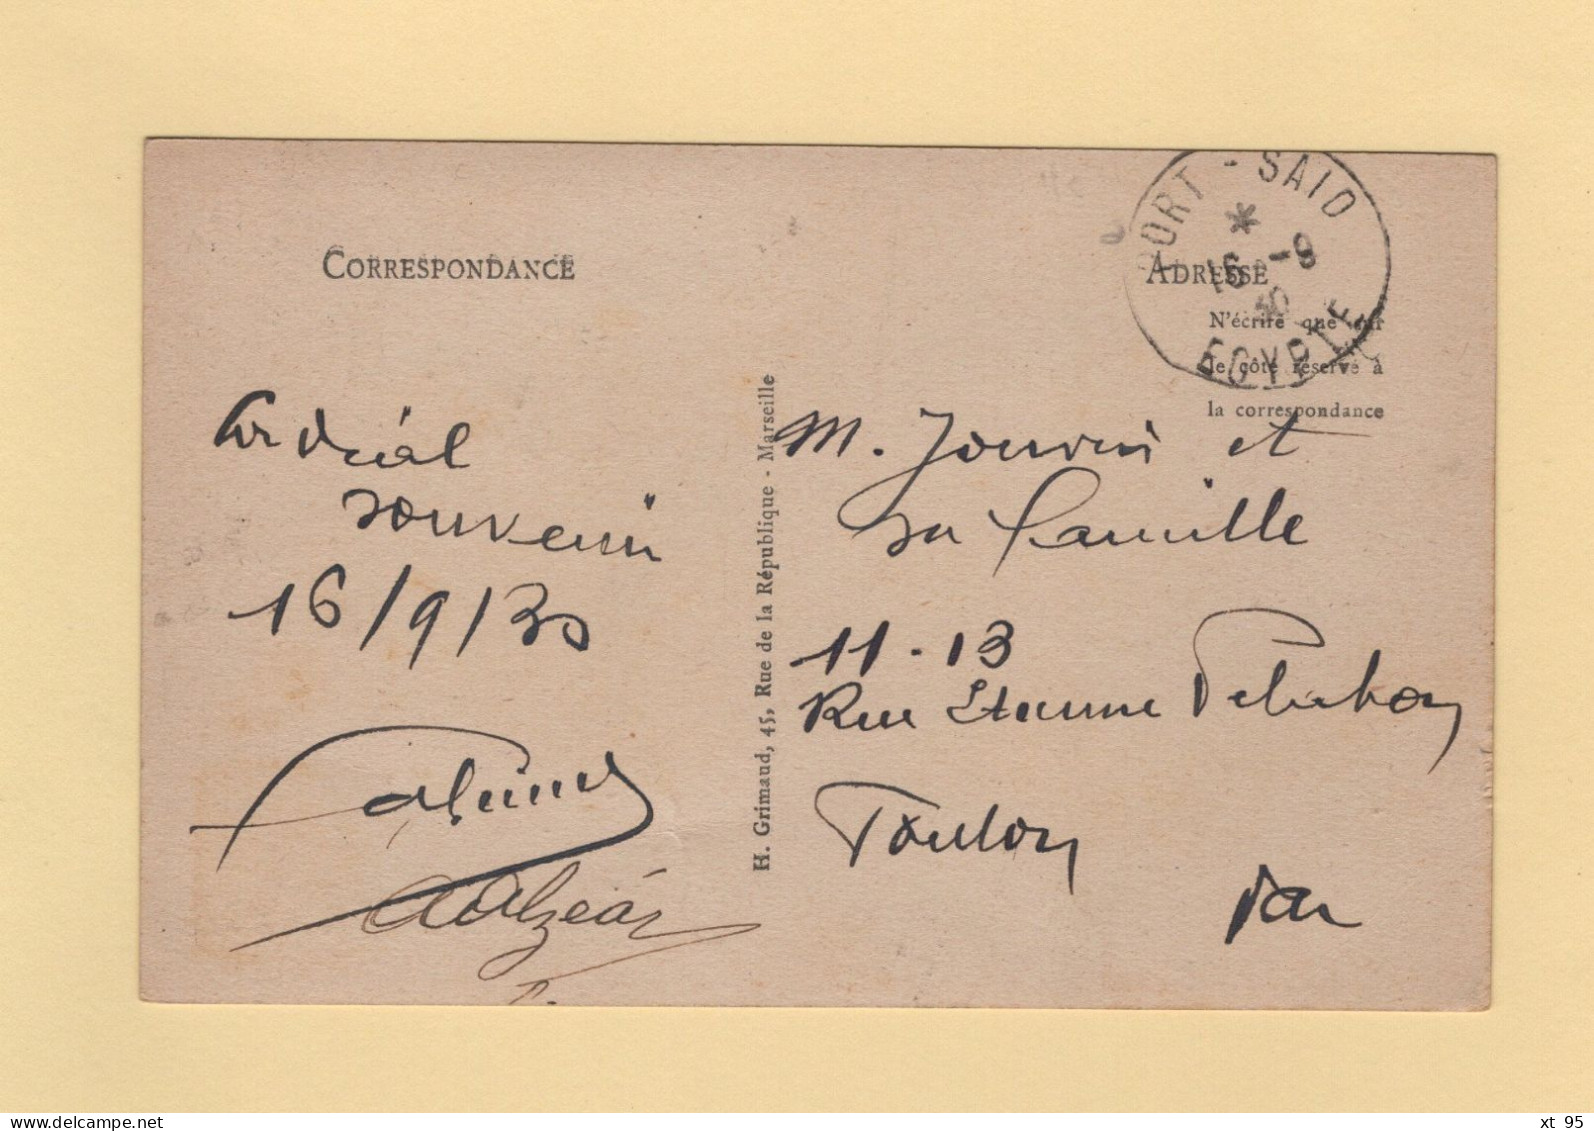 CORRESPONDANCE
Cordial
souvenir
16/9/30
H. Grimaud, 45, Rue de la République - Marseille
PORT - SAID
16 -9
30
EGYPTE
ADRESSE
N'écrire que sur
le côté réservé à
la correspondance
M. Jouvin et
sa famille
11 - 13
Rue Etienne Pelabon
Toulon
Var
xt 95